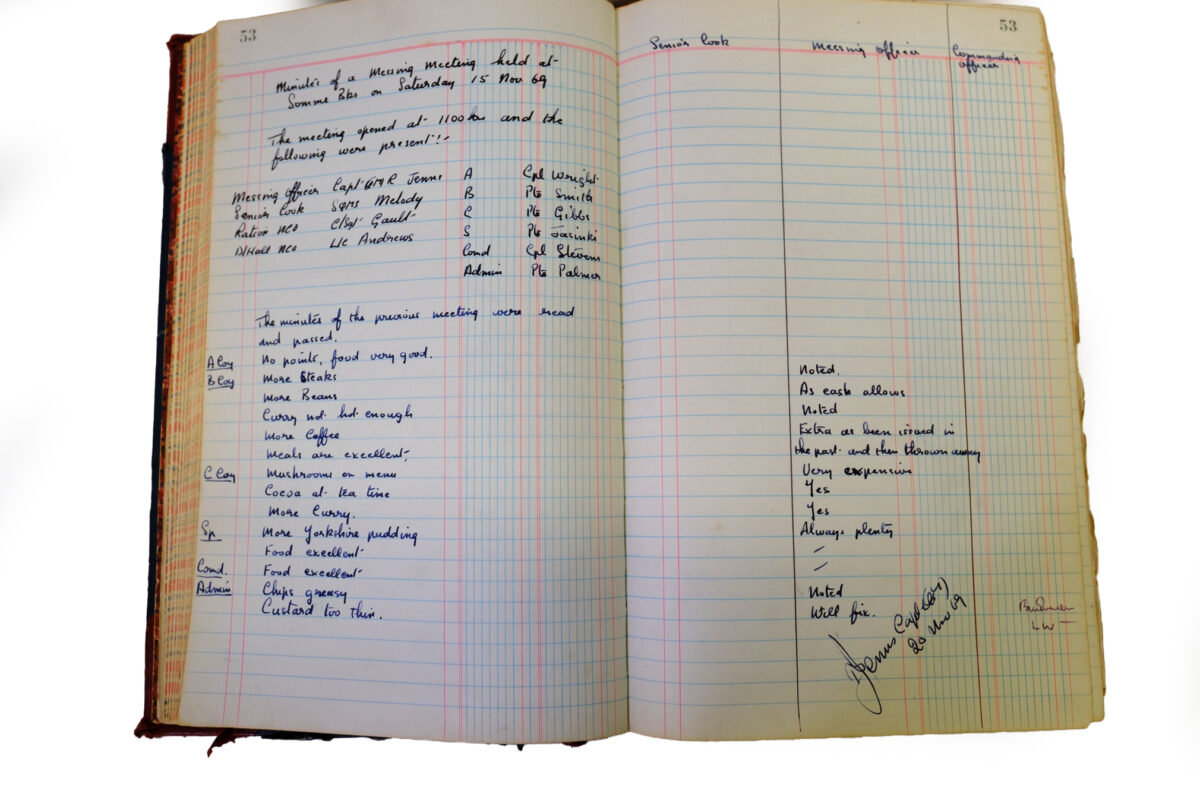 53
Minutes of a Messing Meeting held at
Somme Bks on Saturday 15 Nov 69
The meeting opened at 1100 hrs and the
following were present:-
Messing Officer Capt R Jenns A Cpl Wright
Senior Cook S/Sgt Melody B Pte Smith
Ration NCO C/Sgt Gault C Pte Gibbs
D/Hall NCO L/c Andrews S Pte Jasinki
Comd Cpl Stevens
Admin Pte Palmer
The minutes of the previous meeting were read
and passed.
A Coy No points, food very good.
B Coy More Steaks
More Beans
Curry not hot enough
More Coffee
Meals are excellent.
C Coy Mushrooms on menu
Cocoa at tea time
More Curry.
Sp More Yorkshire pudding
Food excellent
Comd. Food excellent
Admin Chips greasy
Custard too thin.
53
Senior Cook Messing Officer Commanding
Officer
Noted.
As cash allows
Noted
Extra as been issued in
the past and then thrown away
Very expensive
Yes
Yes
Always plenty
-
-
Noted
Will fix.
Jenns Capt
20 Nov 69